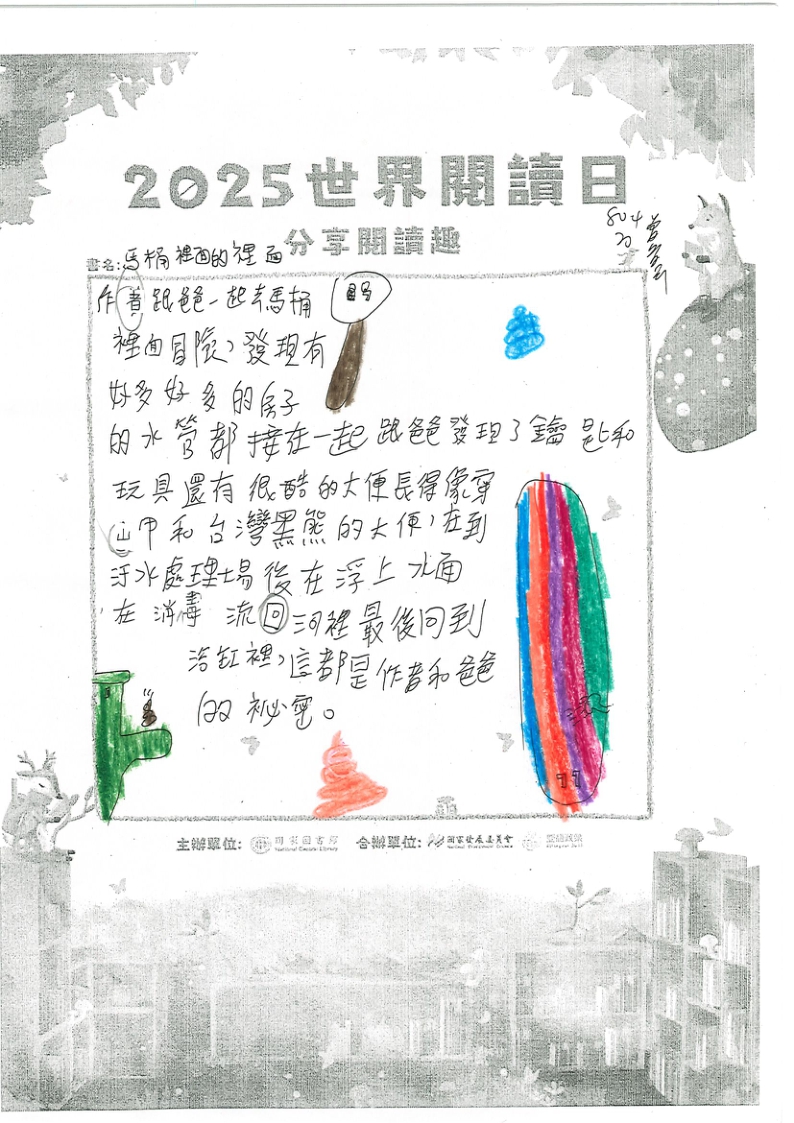 2025世界閱讀日
分享閱讀趣
804
20
書名:馬桶裡面的裡面
作者跟爸一起去馬桶
裡面冒險，發現有
好多好多的房子
的水管都接在一起跟爸發現了鑰匙和
玩具還有很酷的大便長得像穿
山甲和台灣黑熊的大便，在到
汙水處理場後在浮上水面
在消毒流回河裡最後回到
浴缸裡，這都是作者和爸爸
的祕密。
主辦單位: 國家圖書館 合辦單位: 國家發展委員會